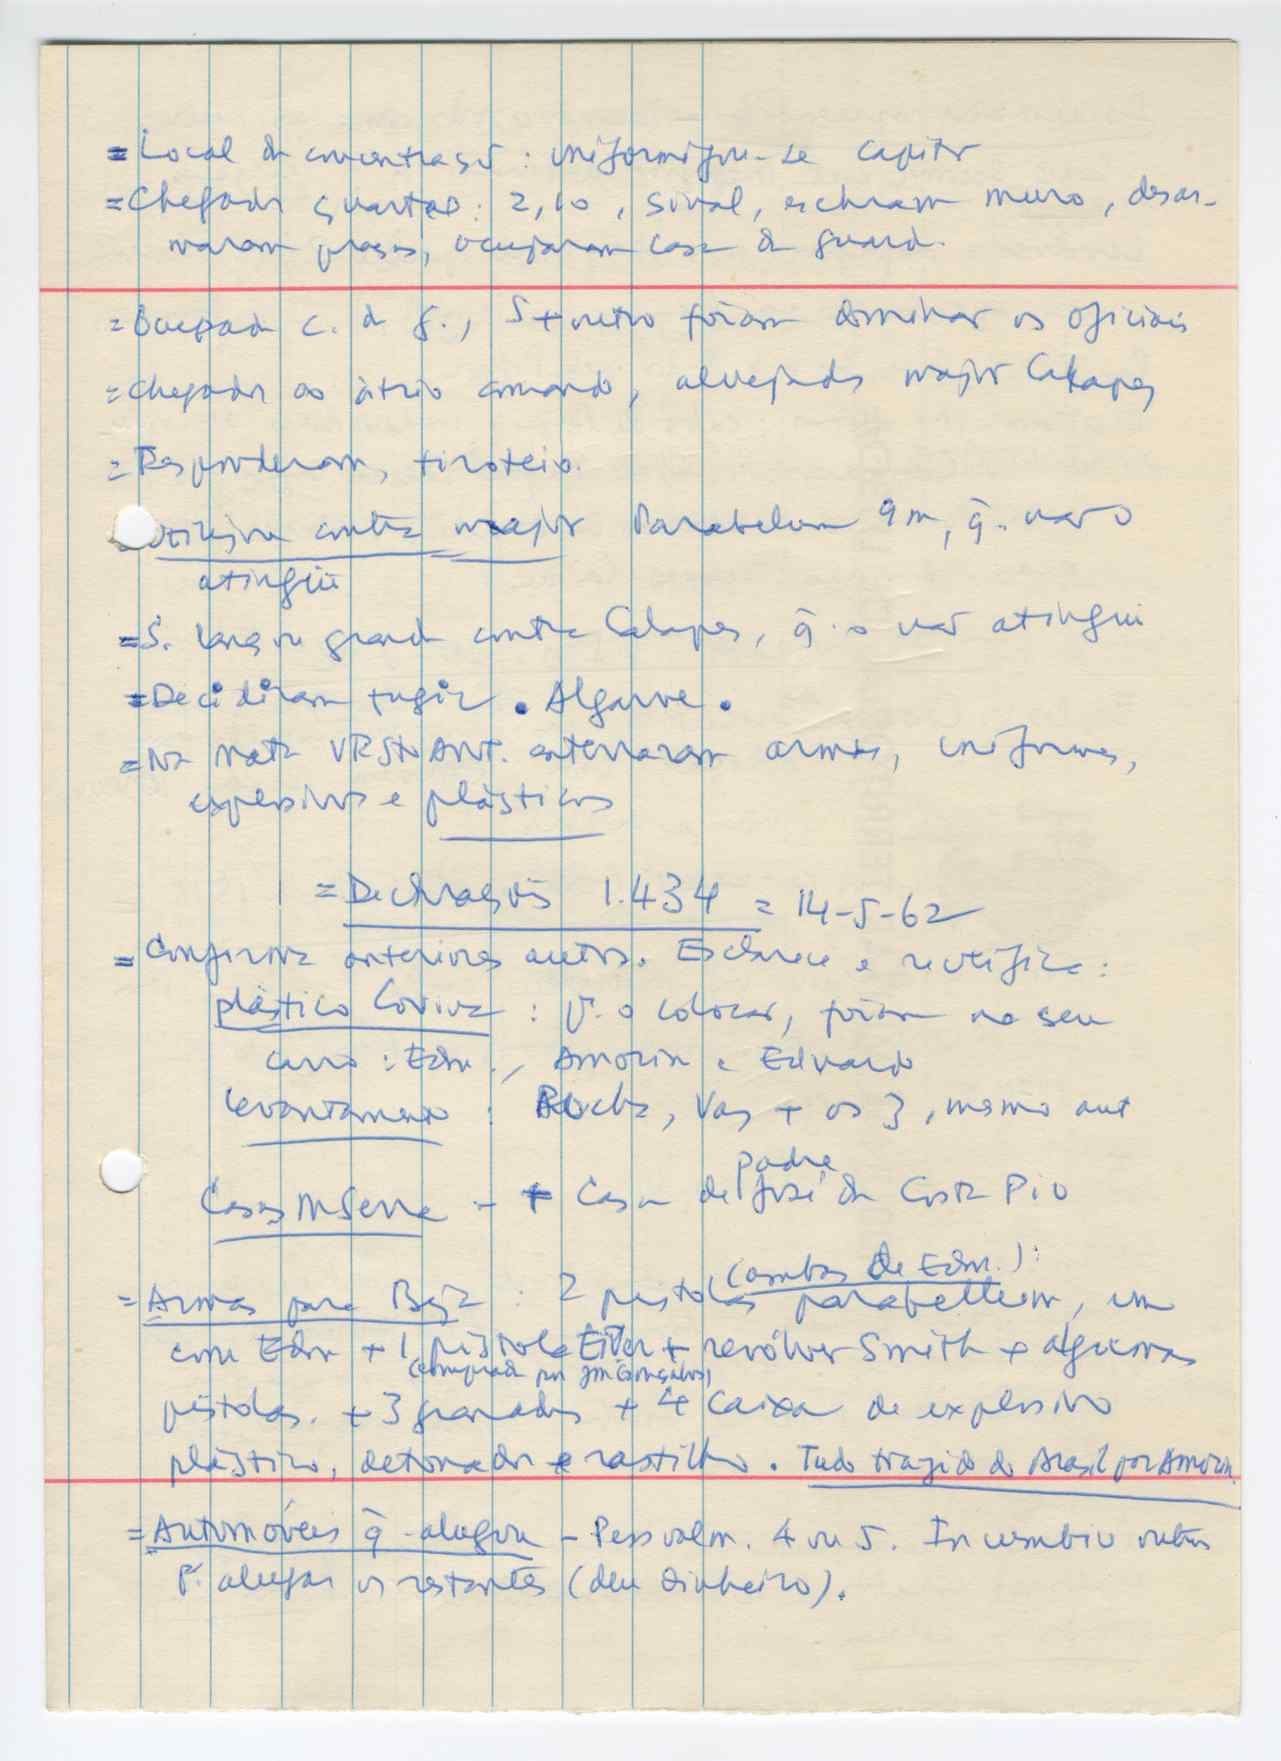 = Local de concentração: uniformizou-se capitão
= Chegada quartel: 2,10, sinal, escalaram muro, desar-
maram praças, ocuparam casa da guarda.
= Ocupada c. da g., S + outro foram dominar os oficiais
= Chegada ao átrio comando, alvejados major Calapez
= Responderam, tiroteio.
= Utilizou contra major Parabelum 9 m, q. não o
atingiu
= S. lançou granada contra Calapez, q. o não atingiu
= Decidiram fugir. Algarve.
= Na mata VRStoAnt. enterraram armas, uniformes,
explosivos e plásticos
= Declarações 1.434 = 14-5-62
= Confirma anteriores autos. Esclarece e rectifica:
plástico Covina: p. o colocar, foram no seu
carro: Edm., Amorim e Eduardo
levantamento: Rocha, Vaz + os 3, mesmo aut
padre
Casas m Serra - + Casa de José da Costa Pio
(ambas de Edm.):
= Armas para Beja: 2 pistolas parabellum, um
com Edm + 1 pistola + revólver Smith + algumas
(comprada por Gonçalves)
pistolas. + 3 granadas + 4 caixa de explosivo
plástico, detonador e rastilho. Tudo trazido do Brasil por Amorim.
= Automóveis q. alugou - Pessoalm. 4 ou 5. Incumbiu outros
p. alugar os restantes (deu dinheiro).